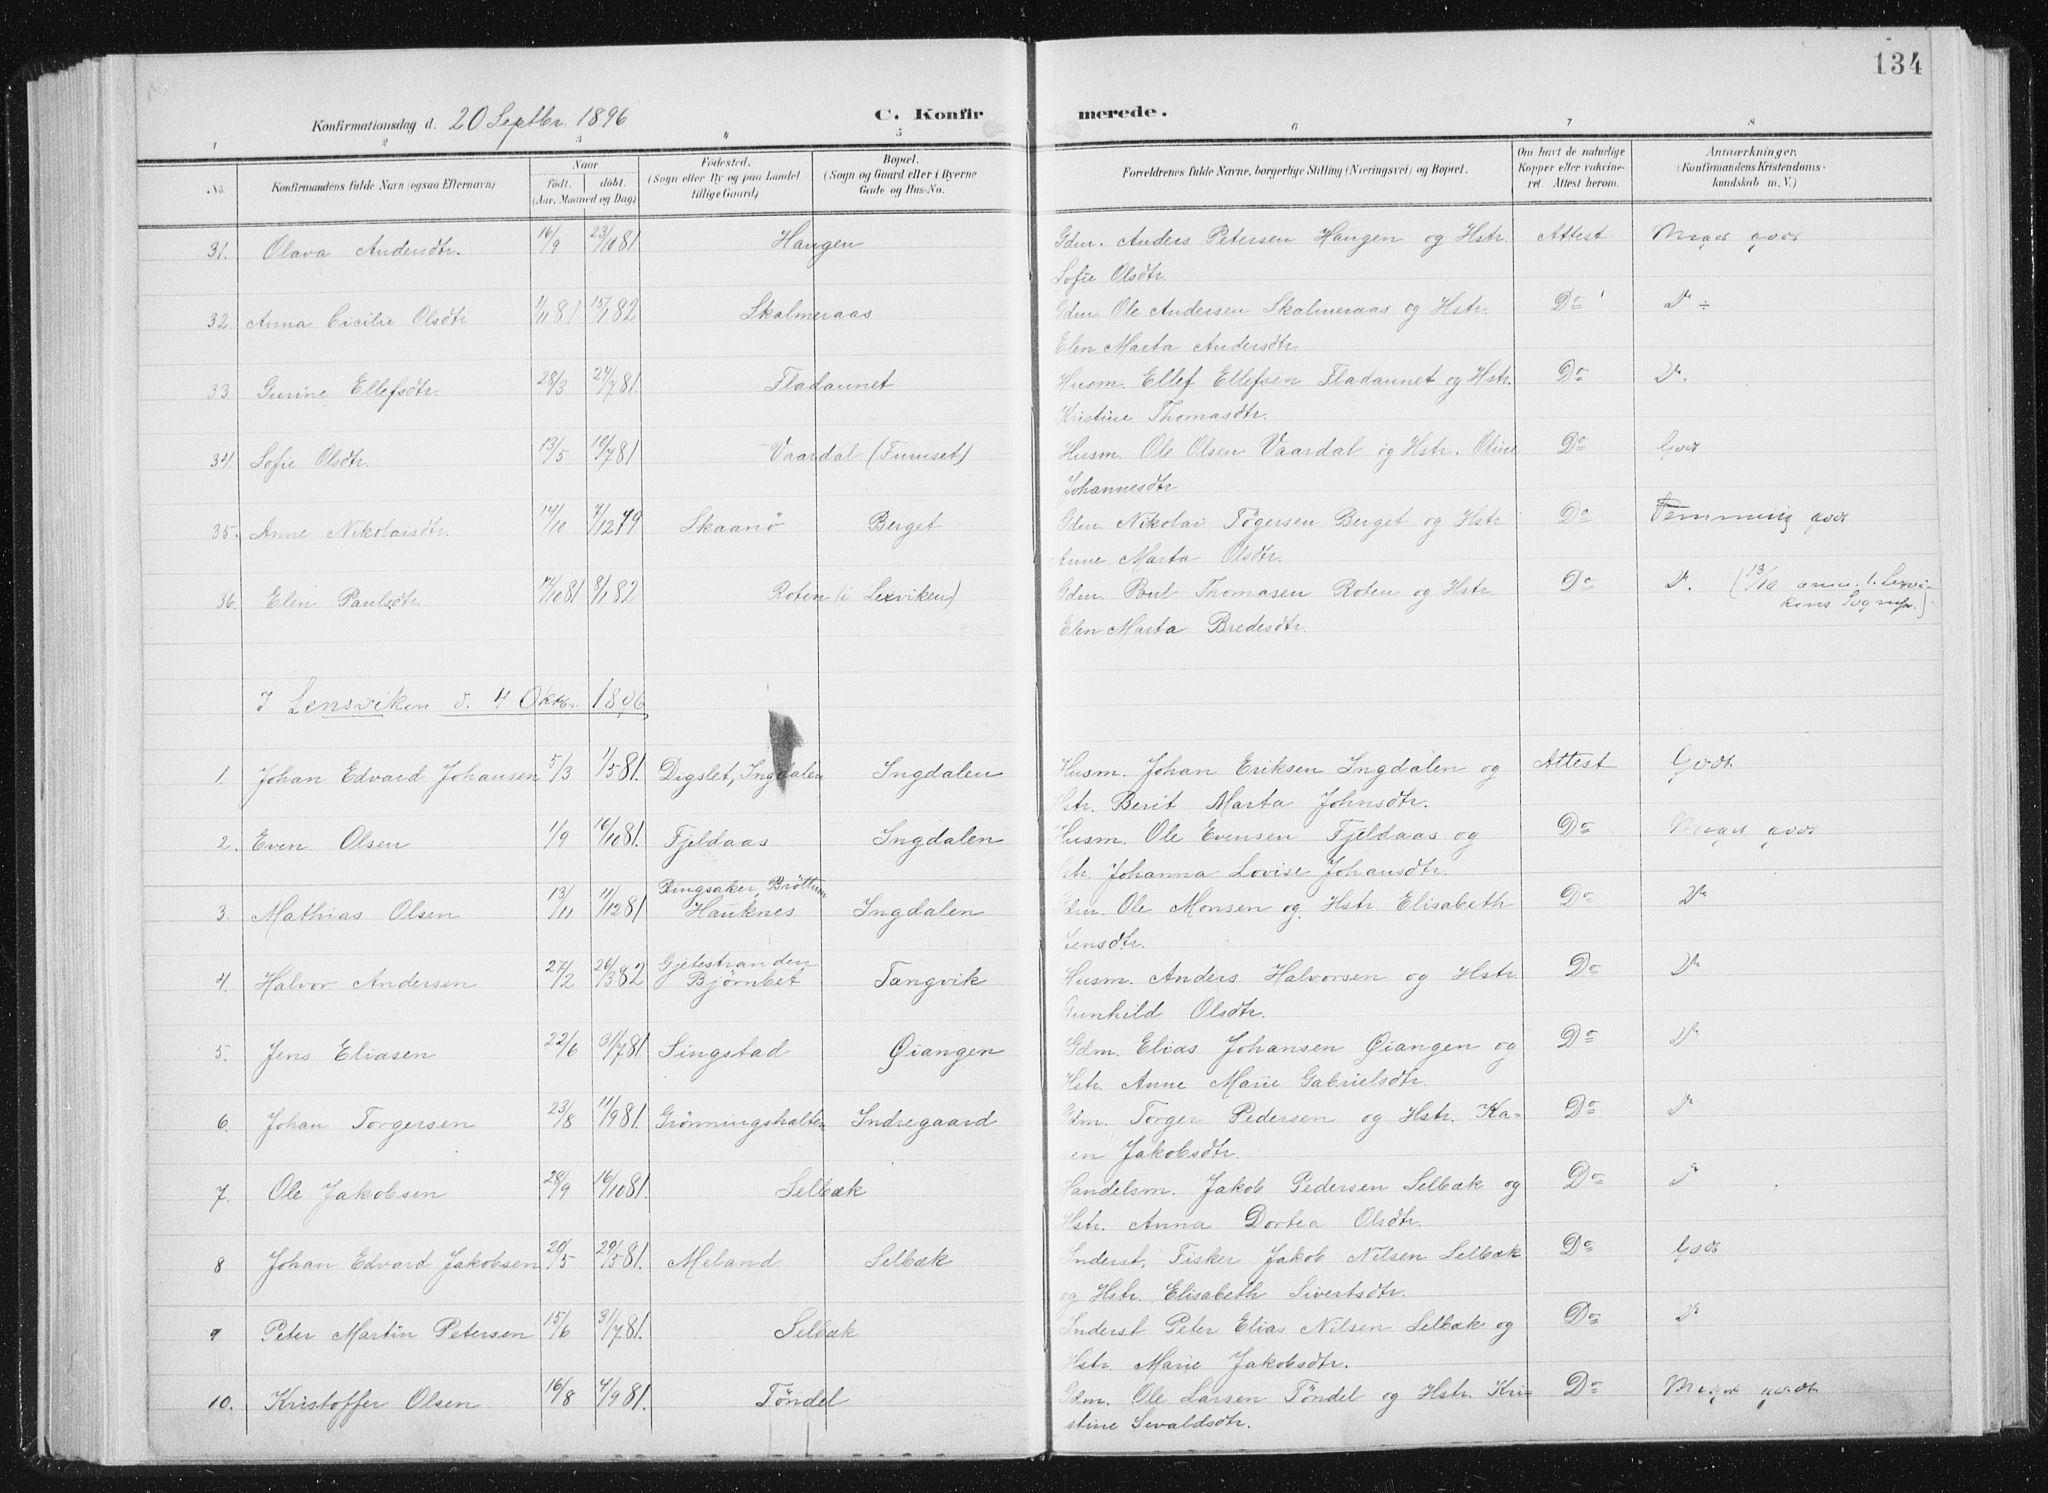 134
Konfirmationsdag d. 20 Septbr. 1896 C. Konfirmerede.
1 2 3 4 5 6 7 8
No. Konfirmandens fulde Navn (ogsaa Efternavn) Naar født. døbt. (Aar, Maaned og Dag) Fødested. (Sogn eller By og paa Landet tillige Gaard) Bopæl. (Sogn og Gaard eller i Byerne Gade og Hus-No. Forældrenes fulde Navne, borgerlige Stilling (Næringsvei) og Bopæl. Om havt de naturlige Kopper eller vakcineret Attest herom. Anmærkninger. (Konfirmandens Kristendomskundskab m. V.)
31. Olava Andersdtr. 16/9 23/10 81 Haugen Gdm. Anders Petersen Haugen og Hstr. Attest Meget godt
Sofie Olsdtr.
32. Anna Cicilie Olsdtr 1/11 81 15/1 82 Skalmeraas Gdm. Ole Andersen Skalmeraas og Hstr. Do Do ÷
Elen Marta Andersdtr.
33 Gurine Ellefsdtr. 28/3 24/7 81. Fladaunet Husm. Ellef Ellefsen Fladaunet og Hstr. Do Do.
Kristine Thomasdtr.
34. Sofie Olsdtr. 13/5 10/7 81 Vaardal (Furuset) Husm. Ole Olsen Vaardal og Hstr. Oline Do Godt
Johannesdtr
35. Anne Nikolaisdtr. 14/10 7/12 79 Skaanø Berget Gdm. Nikolai Tøgersen Berget og Hstr. Do Temmelig godt
Anne Marta Olsdtr.
36. Elen Paulsdtr. 17/10 81 8/1 82 Roten (i Lexviken) Gdm. Poul Thomasen Roten og Hstr. Do Do. (13/10 anm. t. Lexvikens Sognepr.)
Elen Marta Bredesdtr.
I Lensviken d. 4 Oktbr. 1896
1. Johan Edvard Johansen 5/3 1/5 81. Digslet, Ingdalen Ingdalen Husm. Johan Eriksen Ingdalen og Attest Godt.
Hstr. Berit Marta Johnsdtr.
2. Even Olsen 1/9 16/10 81. Fjeldaas Ingdalen Husm. Ole Evensen Fjeldaas og Do Meget godt
Hstr. Johanna Lovise Johansdtr.
3. Mathias Olsen 13/11 11/12 81 Ringsaker, Brøttum Hauknes Ingdalen Gdm. Ole Monsen og Hstr. Elisabeth Do Do
Jensdtr.
4. Halvor Andersen 27/2 26/3 82 Gjelestranden Bjørnbet Tangvik Husm. Anders Halvorsen og Hstr. Do Do
Gunhild Olsdtr.
5. Jens Eliasen 22/6 31/7 81. Singstad Øiangen Gdm. Elias Johansen Øiangen og Do Do
Hstr. Anne Marie Gabrielsdtr.
6. Johan Torgersen 23/8 11/9 81. Grønningshalten Indregaard Gdm. Torger Pedersen og Hstr. Ka- Do Do
en Jakobsdtr.
7. Ole Jakobsen 28/9 16/10 81. Selbæk Handelsm. Jakob Pedersen Selbæk og Do Do
Hstr. Anna Dortea Olsdtr.
8 Johan Edvard Jakobsen 20/5 29/5 81. Meland Selbæk Inderst, Fisker Jakob Nilsen Selbæk Do Godt
og Hstr. Elisabeth Sivertsdtr.
9 Peter Martin Petersen 15/6 31/7 81. Selbæk Inderst Peter Elias Nilsen Selbæk og Do Do
Hstr. Marie Jakobsdtr.
10. Kristoffer Olsen 16/8 4/9 81. Tøndel Gdm. Ole Larsen Tøndel og Hstr. Kri- Do Meget godt
stine Sevaldsdtr.